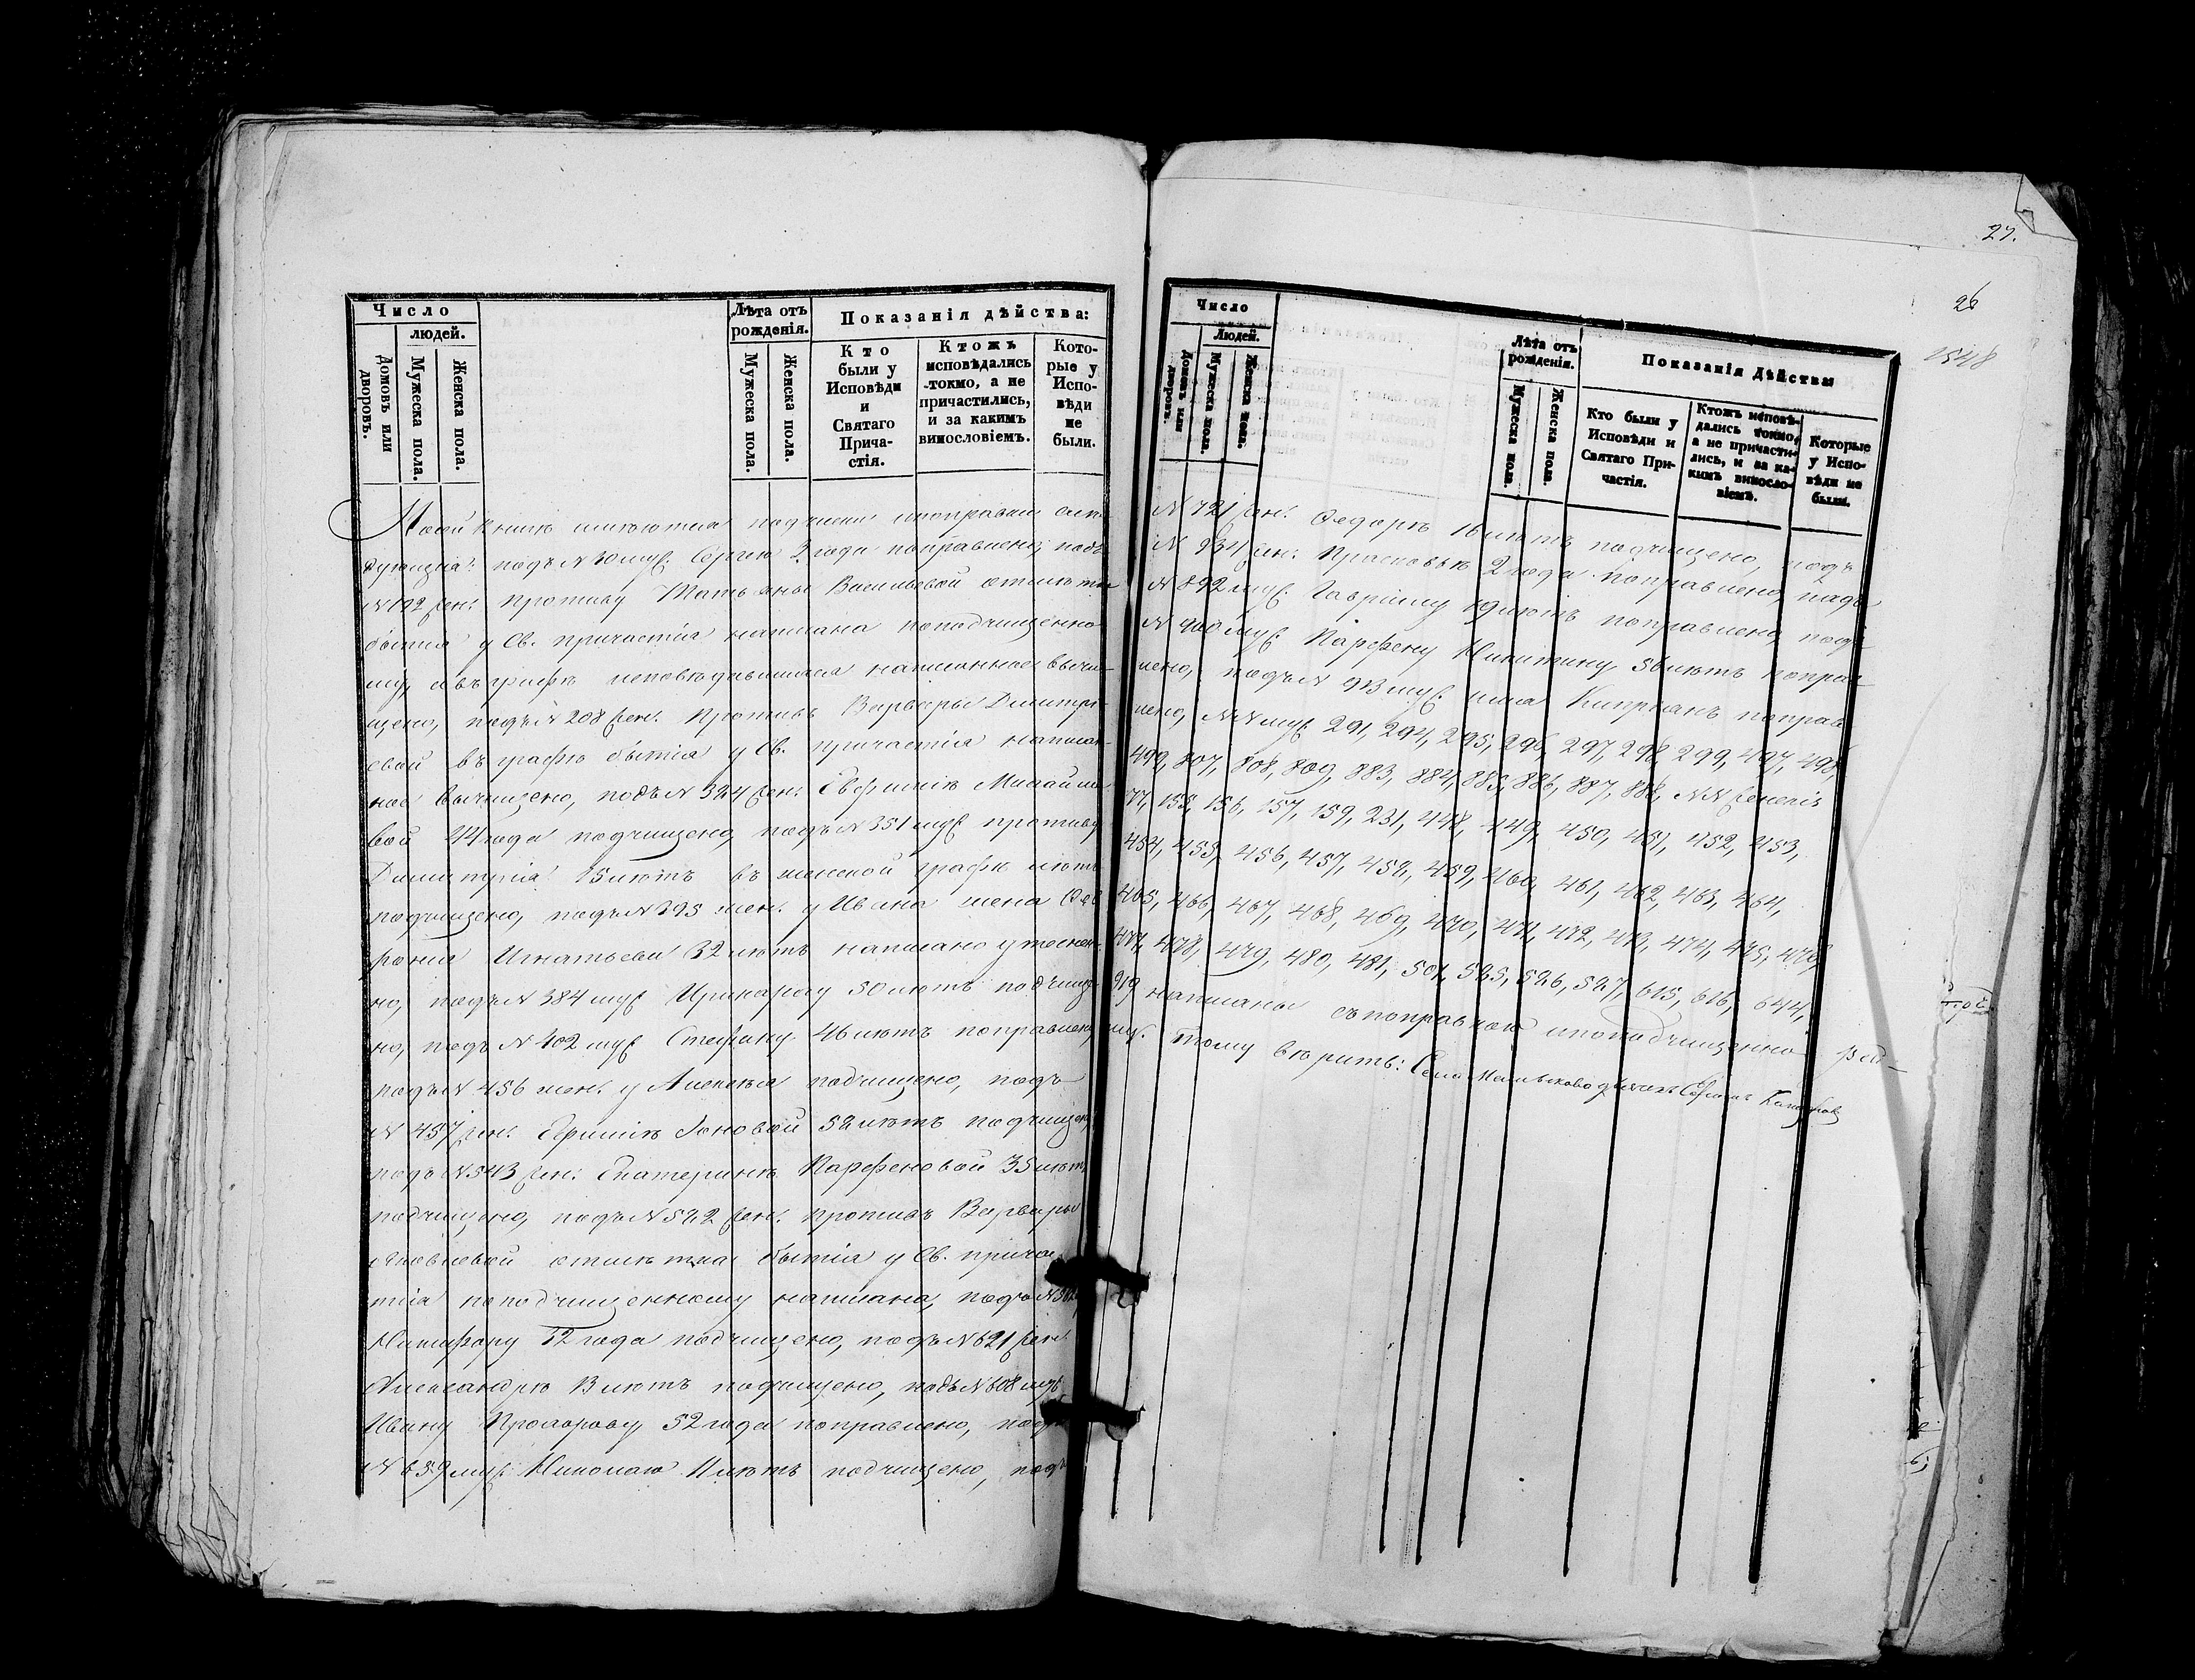 Число
людей.
Домовъ или дворовъ.
Мужеска пола.
Женска пола.
Лѣта отъ рожденія.
Мужеска пола.
Женска пола.
Показанія дѣйства:
Кто были у Исповѣди и Святаго Прича-стія.
Ктожъ исповѣдались токмо, а не причастились, и за какимъ винословіемъ.
Кото-рые у Испо-вѣди не были.
книгѣ имѣются подчистки и поправки слѣ-
дующія: подъ N 30 муж. Сергѣю 2 года поправлено, подъ
N 192 жен. противу Татьяны Васильевой отмѣтка
бытія у Св. причастія написана по подчищенно-
му, а въ графѣ неисповѣдавшихся написанное вычи-
щено, подъ N 208 жен. противъ Варвары Дмитрі-
евой въ графѣ бытія у Св. причастія написан-
ное вычищено, подъ N 324 жен. Евфиміѣ Михайло-
вой 44 года подчищено, подъ N 351 муж. противу
Димитрія 15 лѣтъ въ женской графѣ лѣтъ
подчищено, подъ N 395 жен. у Ивана жена Фев-
ронія Игнатьева 32 лѣтъ написано
но, подъ N 384 муж. 50 лѣтъ подчище-
но, подъ N 402 муж. Стефану 46 лѣтъ поправлено,
подъ N 456 жен. у Алексѣя подчищено, подъ
N 457 жен. 52 лѣтъ подчищено,
подъ N 543 жен. Екатеринѣ Парфеновой 35 лѣтъ
подчищено, подъ N 522 жен. противъ Варвары
Яковлевой отмѣтка бытія у Св. причас-
тія по подчищенному написана, подъ N
Никифору 52 года подчищено, подъ N 621 жен.
Александрѣ 13 лѣтъ подчищено, подъ N 608 муж.
Ивану Прохорову 52 года поправлено, подъ
N 659 муж. Николаю 11 лѣтъ подчищено, подъ
27.
26
1548
Число
Людей.
Домовъ или дворовъ.
Мужеска пола.
Женска пола.
Лѣта отъ рожденія.
Мужеска пола.
Женска пола.
Показанія дѣйства
Кто были у Исповѣди и Святаго При-частія.
Ктожъ исповѣ-дались токмо, а не причасти-лись, и за ка-кимъ виносло-віемъ.
Которые у Испо-вѣди не были.
N 721 жен. Федорѣ 16 лѣтъ подчищено, подъ
N 934 жен. Прасковьѣ 2 года поправлено, подъ
N 892 муж. Гавріилу 19 лѣтъ поправлено, подъ
N 900 муж. Парфену Никитину 56 лѣтъ поправ-
лено, подъ N 913 муж. имя Кипріанъ поправ-
лено, NN муж. 291, 294, 295, 296, 297, 298, 299, 497, 498,
499, 807, 808, 809, 883, 884, 885, 886, 887, 888, NN женскіе
77, 155, 156, 157, 159, 231, 448, 449, 450, 451, 452, 453,
454, 455, 456, 457, 458, 459, 460, 461, 462, 463, 464,
465, 466, 467, 468, 469, 470, 471, 472, 473, 474, 475, 476,
477, 478, 479, 480, 481, 501, 525, 526, 527, 615, 616, 644,
919 написаны съ поправкою и по подчищенно-
му. Тому вѣрить: Села